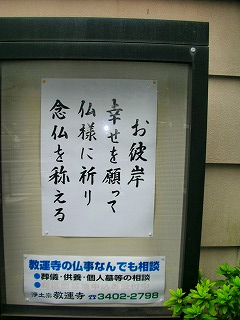 お彼岸
幸せを願って
仏様に祈り
念仏を称える
教運寺の仏事なんでも相談
●葬儀・供養・個人墓等の相談
浄土宗 教運寺 ☎3402-2798